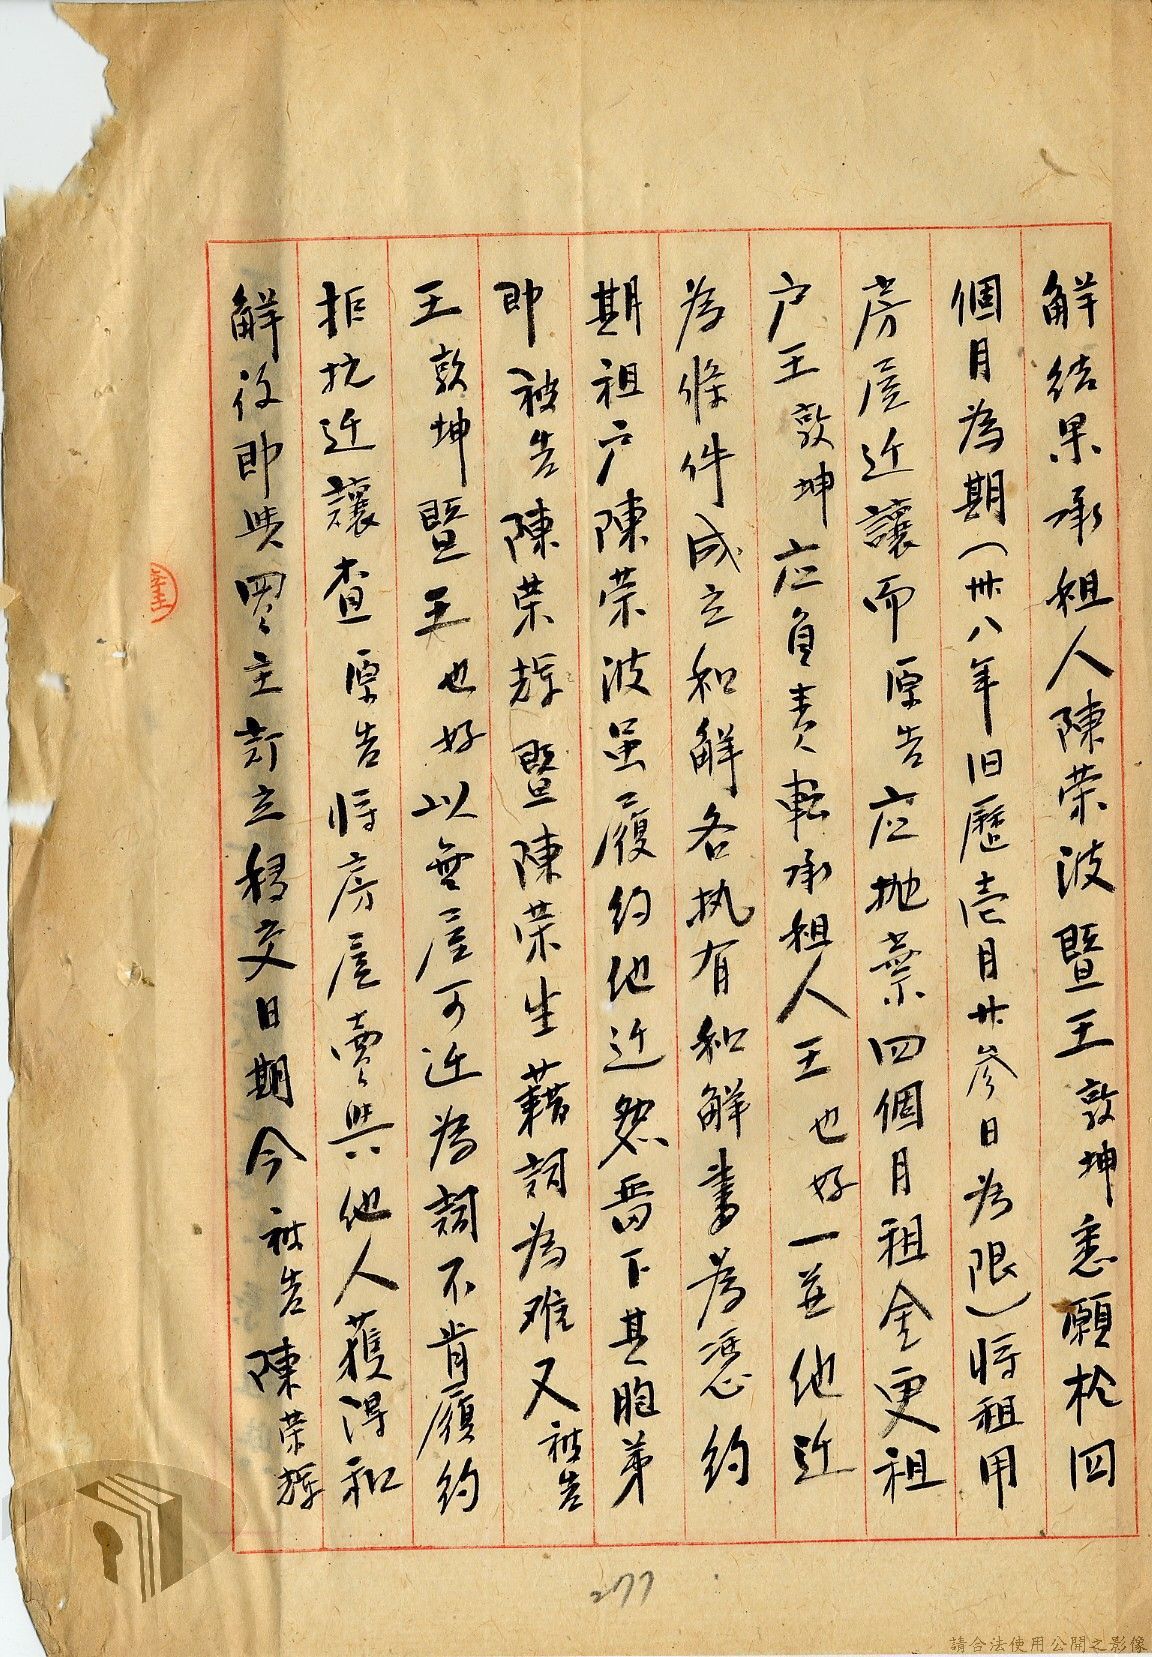 解結果承租人陳荣波暨王敦坤悉願於四
個月為期(卅八年旧曆壱月廿參日為限)將租用
房屋迁讓而原告应抛棄四個月租金更租
户王敦坤应負責転承租人王也好一並他迁
為條件成立和解各执有和解書為憑約
期租户陳荣波虽履約他迁然畨下其胞弟
即被告陳荣輝暨陳荣生藉詞為难又被告
王敦坤暨王也好以無屋可迁為詞不肯履約
拒抗迁讓查原告將房屋賣與他人獲得和
解後即與買主訂立移交日期今被告陳荣輝
277
請合法使用公開之影像